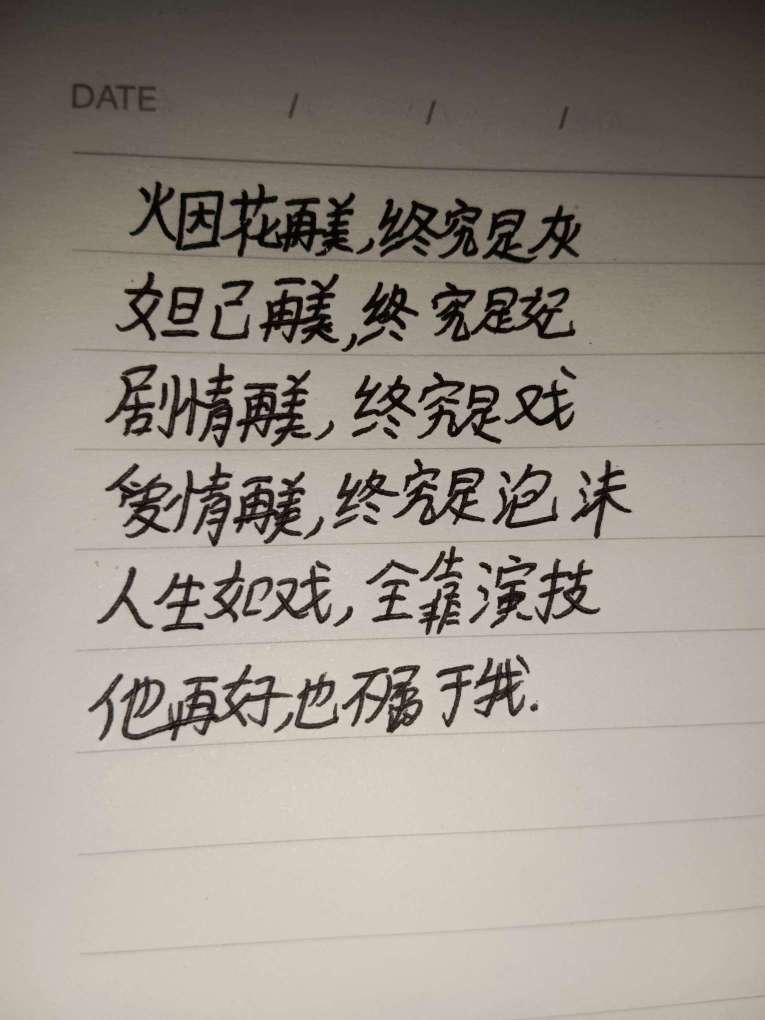 DATE / / /
烟花再美,终究是灰
妲己再美,终究是妃
剧情再美,终究是戏
爱情再美,终究是泡沫
人生如戏,全靠演技
他再好,也不属于我.